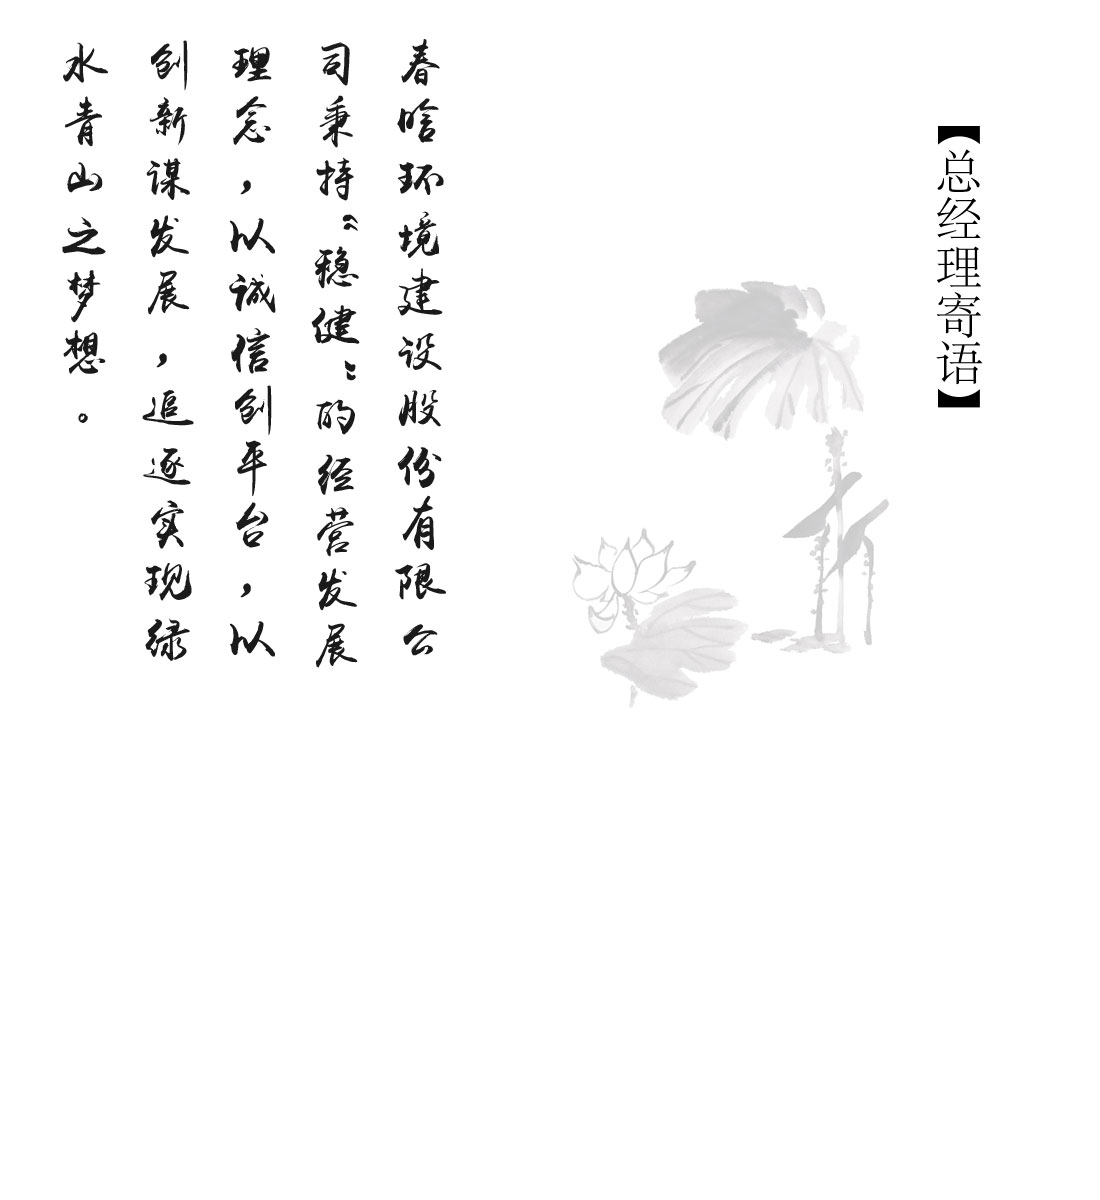 【总经理寄语】
春晗环境建设股份有限公
司秉持“稳健”的经营发展
理念，以诚信创平台，以
创新谋发展，追逐实现绿
水青山之梦想。